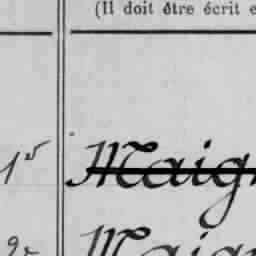 (Il doit être écrit e
1º Maig
2º Maig